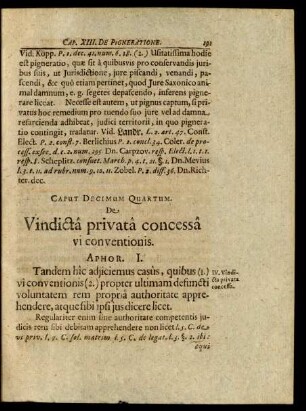 CAP. XIII. DE PIGNERATIONE. 191
Vid. Kopp. P. 1. dec. 41. num. 8. 18. (2.) Usitatissima hodie
est pigneratio, quæ sit â quibusvis pro conservandis juri-
bus suis, ut Jurisdictione, jure piscandi, venandi, pa-
scendi, &c quô etiam pertinet, quod Jure Saxonico ani-
mal damnum, e. g. segetes depascendo, inferens pigne-
rare liceat. Necesse est autem, ut pignus captum, si priva-
tus hoc remedium pro mendo suo jure vel ad damna
resarcienda adhibeat, judici territorii, in quo pignera-
tio contingit, tradatur. Vid. Landr. L. 2. art. 47. Const.
Elect. P. 2. const. 7. Berlichius P. 2. concl. 34. Coler. de pro-
cess. execut. d. c. 2. num. 295. Dn. Carpzov. resp. Elect. l. 1. t. 1.
resp. 1. Scheplitz. consuet. March. p. 4. t. 21. §. 2. Dn. Mevius
l. 3. t. 11. ad rubr. num. 9. 10. 11. Zobel. P. 2. diff. 36. Dn. Rich-
ter. dec.
CAPUT DECIMUM QUARTUM.
De
Vindictâ privatâ concessâ
vi conventionis.
APHOR. I.
Tandem hîc adjiciemus casus, quibus (1.)
vi conventionis (2.) propter ultimam defuncti
voluntatem rem propriâ authoritate appre-
hendere, atque sibi ipsi jus dicere licet.
IV. Vindi-
cta privata
concessa.
Regulariter enim sine authoritate competentis ju-
dicis rem sibi debitam apprehendere non licet l. 3. C. de
pign. l. 9. C. sol. matrim. l. 5. C. de legat. l. 5. §. 2. ibi:
equi